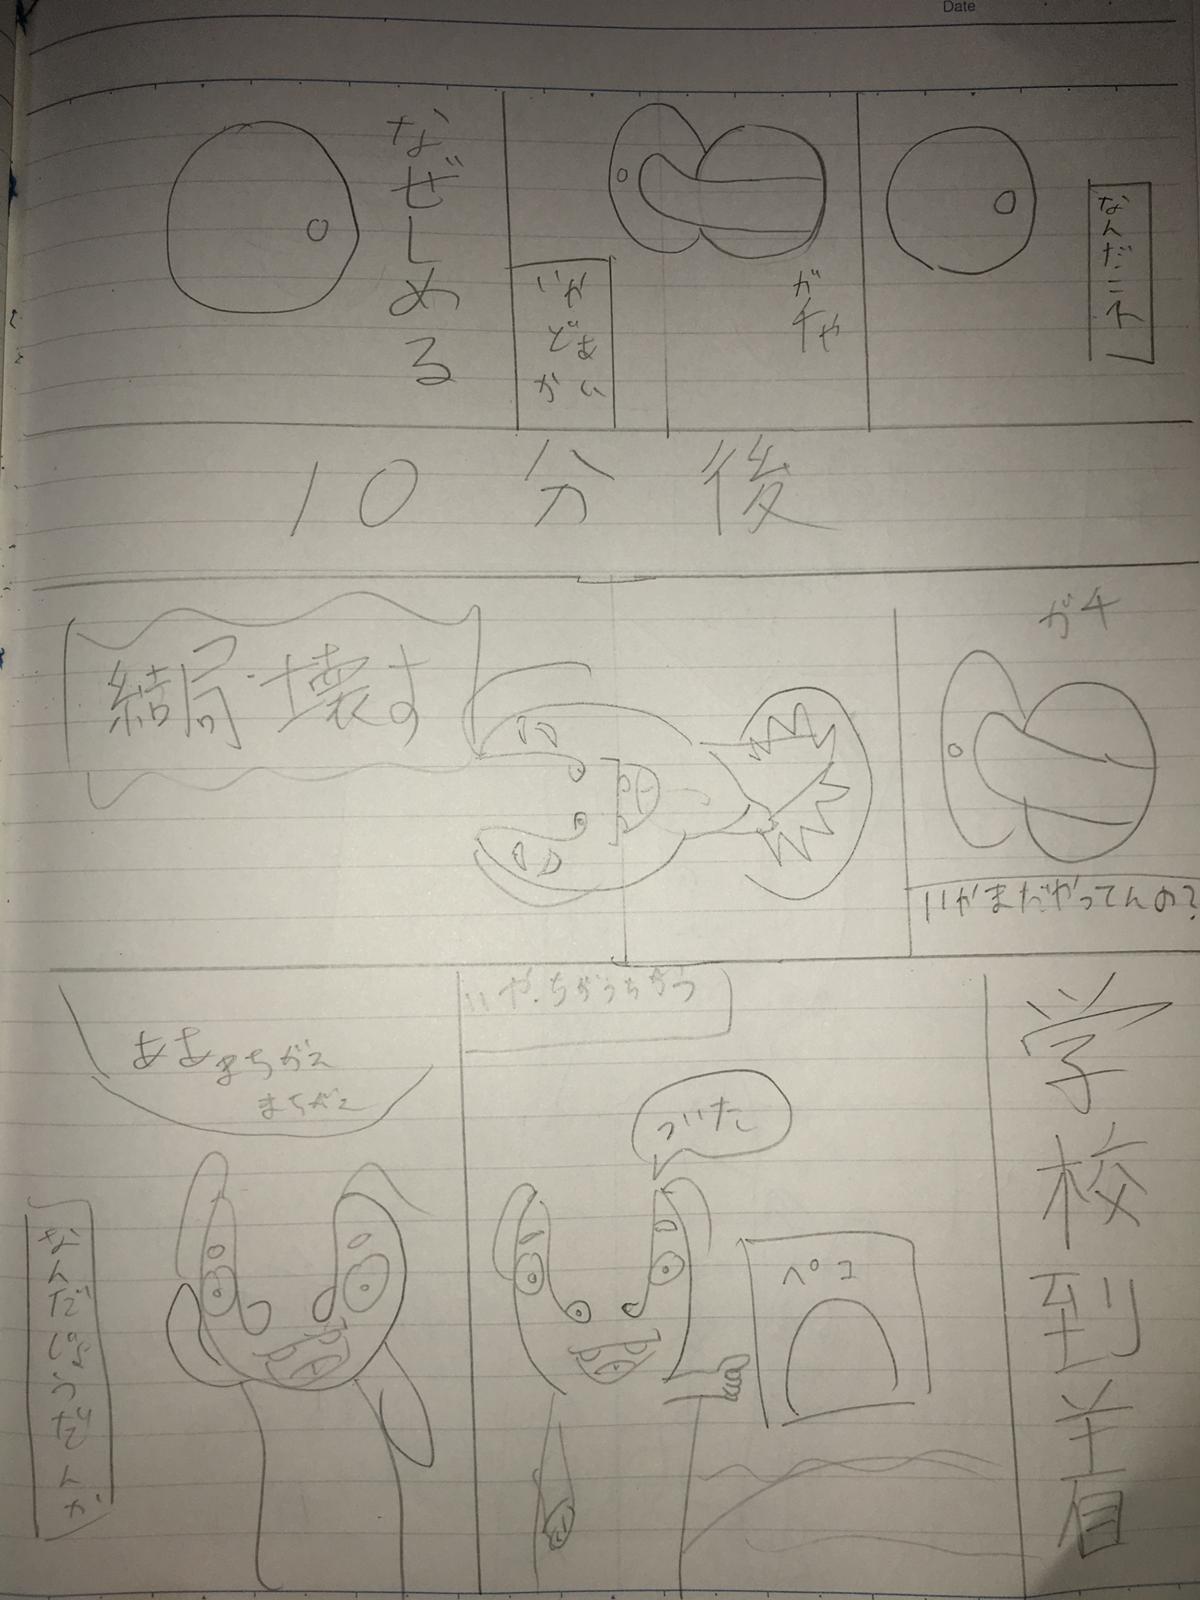 Date
なんだこイ
ガチャ
いかどあかい
なぜしめる
10分後
ガチ
いかまだやってんの?
結局壊す
学校到着
いや、ちがうちがう
ついた
ペコ
ああまちがえ
まちがえ
なんだじょうだんか